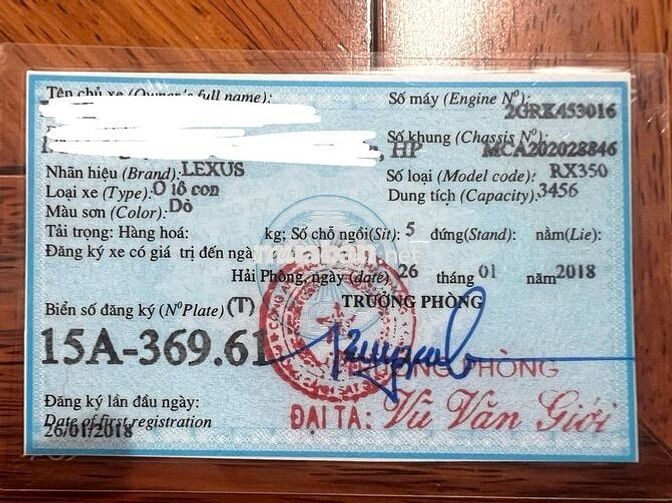 Tên chủ xe (Owner's full name):
Số máy (Engine Nº):
2GRK453016
Số khung (Chassis Nº):
, HP MCA202028846
Nhãn hiệu (Brand): LEXUS
Số loại (Model code): RX350
Loại xe (Type): Ô tô con
Dung tích (Capacity): 3456
Màu sơn (Color): Đỏ
Tải trọng: Hàng hoá: kg; Số chỗ ngồi(Sit): 5 đứng(Stand): nằm(Lie):
Đăng ký xe có giá trị đến ngày
muaban.net
Hải Phòng, ngày (date) 26 tháng 01 năm 2018
Biển số đăng ký (NºPlate) (T)
TRƯỞNG PHÒNG
15A-369.61
TRƯỞNG PHÒNG
Đăng ký lần đầu ngày:
Date of first registration
26/01/2018
ĐẠI TÁ: Vũ Văn Giới